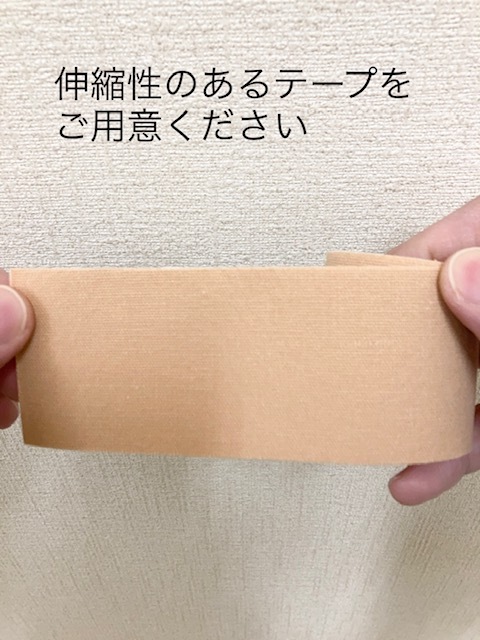 伸縮性のあるテープを
ご用意ください